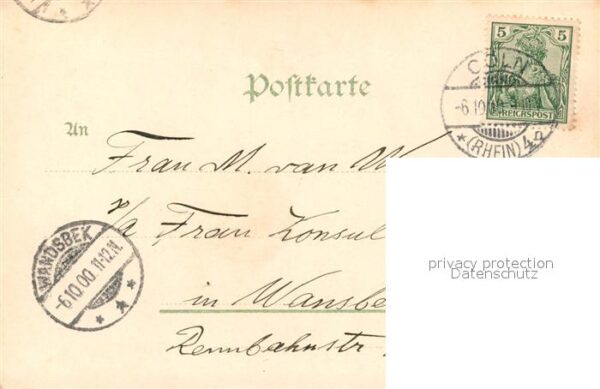 5 5
REICHSPOST
CÖLN
-6.10.00
*(RHEIN) 4n
Postkarte
An
Frau M. van W
p/a Frau Konsul
in Wansbe
Rennbahnstr.
WANDSBEK
-6.10.00.11-12.N.
privacy protection
Datenschutz